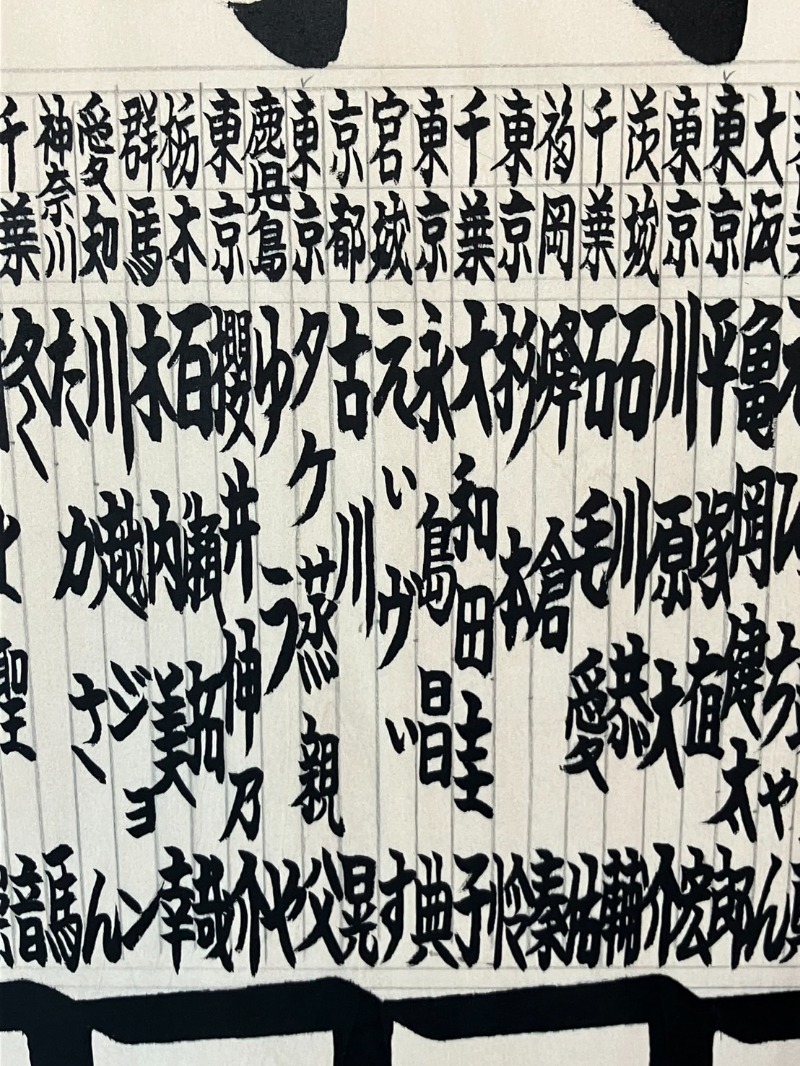 大阪 亀岡健太郎
東京 平塚直宏
東京 川原大介
茨城 石川恭輔
千葉 石毛愛佑
福岡 峰倉秦
東京 杉本怜
千葉 大和田圭子
東京 永島昌典
宮城 えぃヴぃす
京都 古川晃
東京 タケ蒸親父
鹿児島 ゆうや
東京 櫻井伸乃介
栃木 百瀬拓哉
群馬 木内美幸
愛知 川越ジョン
神奈川 たかさん
千葉